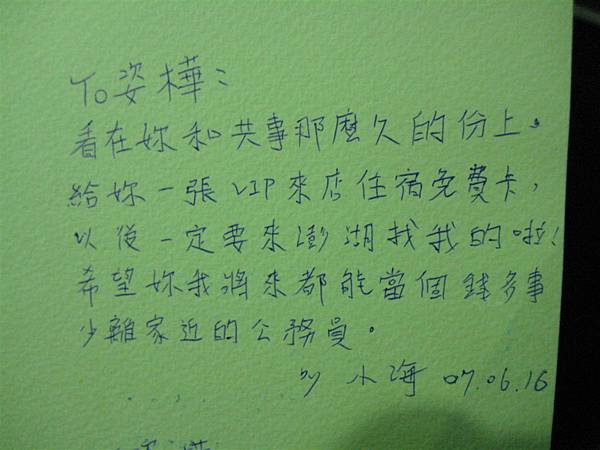 To 姿樺：
看在妳和共事那麼久的份上。
給妳一張VIP來店住宿免費卡，
以後一定要來澎湖找我的啦！
希望妳我將來都能當個錢多事
少離家近的公務員。
by 小海 07.06.16